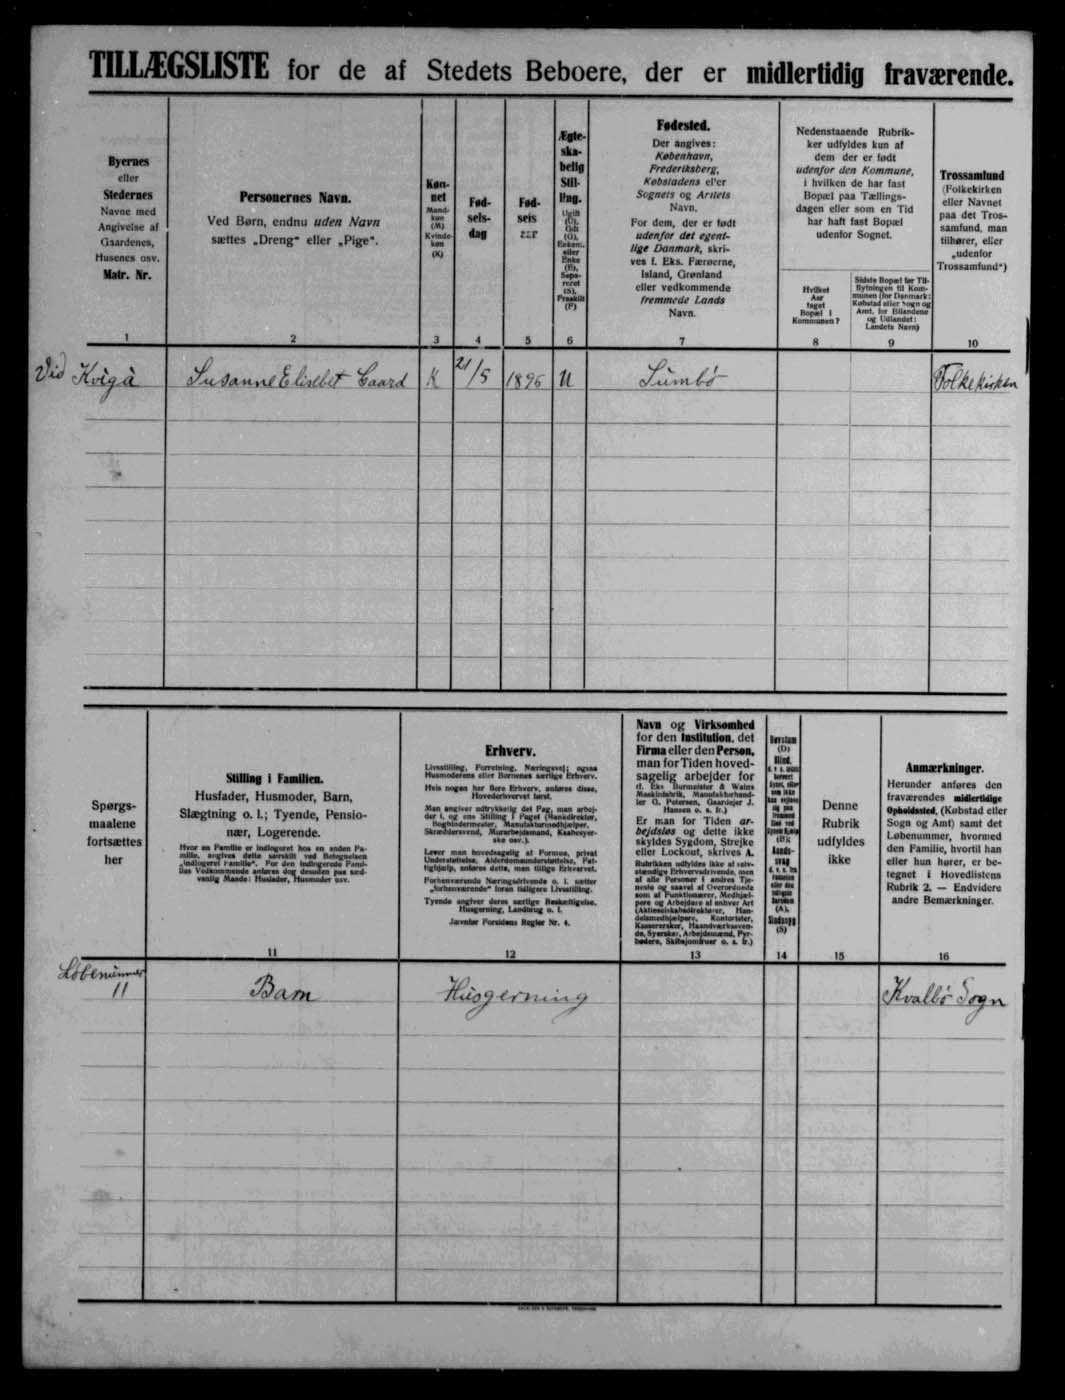 TILLÆGSLISTE for de af Stedets Beboere, der er midlertidig fraværende.
Byernes
eller
Stedernes
Navne med
Angivelse af
Gaardenes,
Husenes osv.
Matr. Nr.
1
Personernes Navn.
Ved Børn, endnu uden Navn
sættes „Dreng“ eller „Pige“.
2
Køn-
net
Mand-
køn
(M)
Kvinde-
køn
(K)
3
Fød-
sels-
dag
4
Fød-
sels
aar
5
Ægte-
ska-
belig
Stil-
ling.
Ugift
(U),
Gift
(G),
Enkem.
eller
Enke
(E),
Sepa-
reret
(S),
Fraskilt
(F)
6
Fødested.
Der angives:
København,
Frederiksberg,
Købstadens eller
Sognets og Amtets
Navn.
For dem, der er født
udenfor det egent-
lige Danmark, skri-
ves f. Eks. Færøerne,
Island, Grønland
eller vedkommende
fremmede Lands
Navn.
7
Nedenstaaende Rubrik-
ker udfyldes kun af
dem der er født
udenfor den Kommune,
i hvilken de har fast
Bopæl paa Tællings-
dagen eller som en Tid
har haft fast Bopæl
udenfor Sognet.
Hvilket
Aar
taget
Bopæl i
Kommunen?
8
Sidste Bopæl før Til-
flytningen til Kom-
munen (for Danmark:
Købstad eller Sogn og
Amt, for Bilandene
og Udlandet:
Landets Navn)
9
Trossamfund
(Folkekirken
eller Navnet
paa det Tros-
samfund, man
tilhører, eller
„udenfor
Trossamfund“)
10
Vid Kvígá Susanne Elisebet Gaard K 21/5 1896 U Sumbø Folkekirken
Spørgs-
maalene
fortsættes
her
Stilling i Familien.
Husfader, Husmoder, Barn,
Slægtning o. l.; Tyende, Pensio-
nær, Logerende.
Hvor en Familie er indlogeret hos en anden Fa-
milie, angives dette særskilt ved Betegnelsen
„indlogeret Familie“. For den indlogerede Fami-
lies Vedkommende anføres dog desuden paa sæd-
vanlig Maade: Husfader, Husmoder osv.
11
Erhverv.
Livsstilling, Forretning, Næringsvej; ogsaa
Husmoderens eller Børnenes særlige Erhverv.
Hvis nogen har flere Erhverv, anføres disse,
Hovederhvervet først.
Man angiver udtrykkelig det Fag, man arbej-
der i, og ens Stilling i Faget (Bankdirektør,
Bogbindermester, Manufakturmedhjælper,
Skræddersvend, Murarbejdsmand, Kaabesyer-
ske osv.).
Lever man hovedsagelig af Formue, privat
Understøttelse, Alderdomsunderstøttelse, Fat-
tighjælp, anføres dette, men tillige Erhvervet.
Forhenværende Næringsdrivende o. l. sætter
„forhenværende“ foran tidligere Livsstilling.
Tyende angiver deres særlige Beskæftigelse,
Husgerning, Landbrug o. l.
Jævnfør Forsidens Regler Nr. 4.
12
Navn og Virksomhed
for den Institution, det
Firma eller den Person,
man for Tiden hoved-
sagelig arbejder for
(f. Eks. Burmeister & Wains
Maskinfabrik, Manufakturhand-
ler O. Petersen, Gaardejer J.
Hansen o. s. fr.)
Er man for Tiden ar-
bejdsløs og dette ikke
skyldes Sygdom, Strejke
eller Lockout, skrives A.
Rubrikken udfyldes ikke af selv-
stændige Erhvervsdrivende, men
af alle Personer i andres Tje-
neste og saavel af Overordnede
som af Funktionærer, Medhjæl-
pere og Arbejdere af enhver Art
(Aktieselskabsdirektører, Han-
delsmedhjælpere, Kontorister,
Kassererske, Haandværkssven-
de, Syersker, Arbejdsmænd, Fyr-
bødere, Skibsjomfruer o. s. fr.)
13
Døvstum
(D)
Blind,
Aands-
svag
(A),
Sindssyg
(S)
14
Denne
Rubrik
udfyldes
ikke
15
Anmærkninger.
Herunder anføres den
fraværendes midlertidige
Opholdssted, (Købstad eller
Sogn og Amt) samt det
Løbenummer, hvormed
den Familie, hvortil han
eller hun hører, er be-
tegnet i Hovedlistens
Rubrik 2. — Endvidere
andre Bemærkninger.
16
Løbenummer
11 Barn Húsgerning Kvalbø Sogn